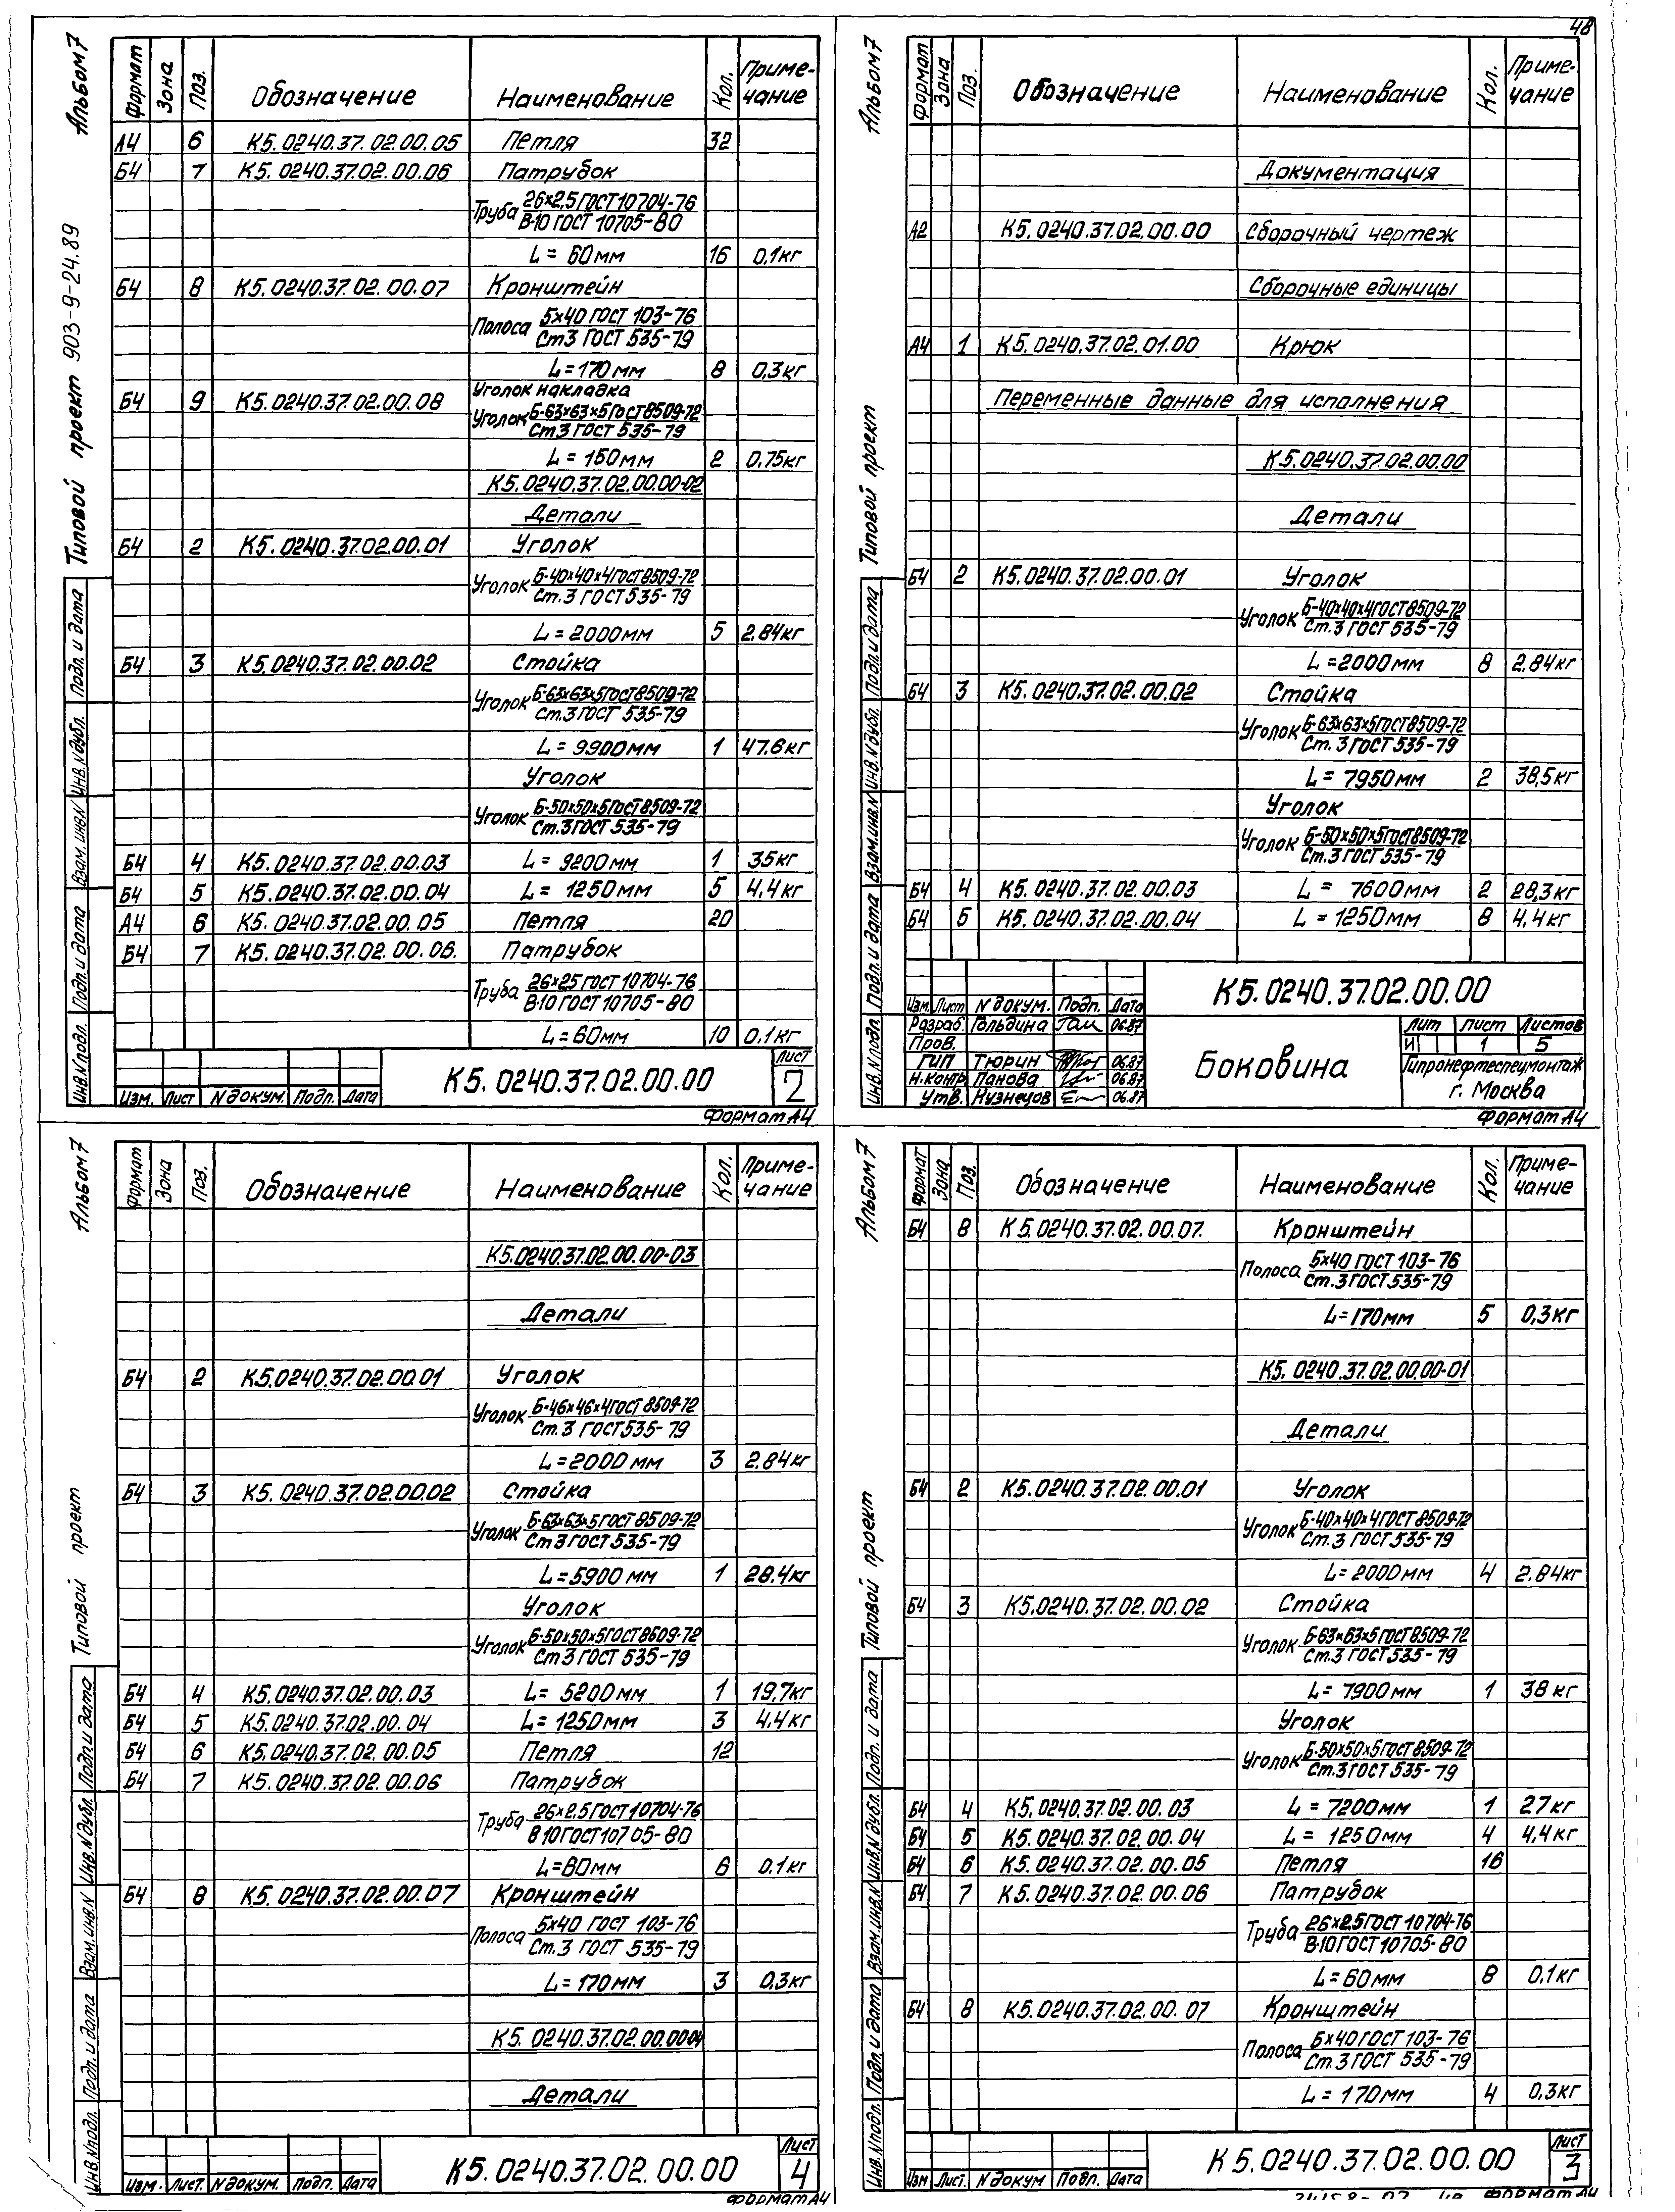 48
Альбом 7
Типовой проект 903-9-24.89
Формат Зона Поз. Обозначение Наименование Кол. Примечание
А4 6 К5.0240.37.02.00.05 Петля 32
Б4 7 К5.0240.37.02.00.06 Патрубок
Труба 26×2,5 ГОСТ 10704-76
В-10 ГОСТ 10705-80
L=60мм 16 0,1кг
Б4 8 К5.0240.37.02.00.07 Кронштейн
Полоса 5×40 ГОСТ 103-76
Ст3 ГОСТ 535-79
L=170мм 8 0,3кг
Б4 9 К5.0240.37.02.00.08 Уголок накладка
Уголок Б-63×63×5 ГОСТ 8509-72
Ст3 ГОСТ 535-79
L=150мм 2 0,75кг
К5.0240.37.02.00.00-02
Детали
Б4 2 К5.0240.37.02.00.01 Уголок
Уголок Б-40×40×4 ГОСТ 8509-72
Ст.3 ГОСТ 535-79
L=2000мм 5 2.84кг
Б4 3 К5.0240.37.02.00.02 Стойка
Уголок Б-63×63×5 ГОСТ 8509-72
Ст.3 ГОСТ 535-79
L=9900мм 1 47.6кг
Уголок
Уголок Б-50×50×5 ГОСТ 8509-72
Ст.3 ГОСТ 535-79
Б4 4 К5.0240.37.02.00.03 L=9200мм 1 35кг
Б4 5 К5.0240.37.02.00.04 L=1250мм 5 4,4кг
А4 6 К5.0240.37.02.00.05 Петля 20
Б4 7 К5.0240.37.02.00.06. Патрубок
Труба 26×2,5 ГОСТ 10704-76
В-10 ГОСТ 10705-80
L=60мм 10 0.1кг
Инв.N подл. Подп. и дата Взам.инв.N Инв.N дубл. Подп. и дата
Изм. Лист N докум. Подп. Дата
К5.0240.37.02.00.00
Лист 2
Формат А4
Альбом 7
Типовой проект
Формат Зона Поз. Обозначение Наименование Кол. Примечание
Документация
А2 К5.0240.37.02.00.00 Сборочный чертеж
Сборочные единицы
А4 1 К5.0240.37.02.01.00 Крюк
Переменные данные для исполнения
К5.0240.37.02.00.00
Детали
Б4 2 К5.0240.37.02.00.01 Уголок
Уголок Б-40×40×4 ГОСТ 8509-72
Ст.3 ГОСТ 535-79
L=2000мм 8 2.84кг
Б4 3 К5.0240.37.02.00.02 Стойка
Уголок Б-63×63×5 ГОСТ 8509-72
Ст.3 ГОСТ 535-79
L=7950мм 2 38,5кг
Уголок
Уголок Б-50×50×5 ГОСТ 8509-72
Ст.3 ГОСТ 535-79
Б4 4 К5.0240.37.02.00.03 L=7600мм 2 28,3кг
Б4 5 К5.0240.37.02.00.04 L=1250мм 8 4,4кг
Инв.N подл. Подп. и дата Взам.инв.N Инв.N дубл. Подп. и дата
К5.0240.37.02.00.00
Изм. Лист N докум. Подп. Дата
Разраб. Гольдина 06.87
Пров.
ГИП Тюрин 06.87
Н.контр. Панова 06.87
Утв. Кузнецов 06.87
Боковина
Лит Лист Листов
И 1 5
Гипронефтеспецмонтаж
г. Москва
Формат А4
Альбом 7
Типовой проект
Формат Зона Поз. Обозначение Наименование Кол. Примечание
К5.0240.37.02.00.00-03
Детали
Б4 2 К5.0240.37.02.00.01 Уголок
Уголок Б-46×46×4 ГОСТ 8509-72
Ст.3 ГОСТ 535-79
L=2000мм 3 2,84кг
Б4 3 К5.0240.37.02.00.02 Стойка
Уголок Б-63×63×5 ГОСТ 8509-72
Ст3 ГОСТ 535-79
L=5900мм 1 28.4кг
Уголок
Уголок Б-50×50×5 ГОСТ 8609-72
Ст3 ГОСТ 535-79
Б4 4 К5.0240.37.02.00.03 L=5200мм 1 19,7кг
Б4 5 К5.0240.37.02.00.04 L=1250мм 3 4.4кг
Б4 6 К5.0240.37.02.00.05 Петля 12
Б4 7 К5.0240.37.02.00.06 Патрубок
Труба 26×2,5 ГОСТ 10704-76
В10 ГОСТ 10705-80
L=60мм 6 0.1кг
Б4 8 К5.0240.37.02.00.07 Кронштейн
Полоса 5×40 ГОСТ 103-76
Ст.3 ГОСТ 535-79
L=170мм 3 0,3кг
К5.0240.37.02.00.00-04
Детали
Инв.N подл. Подп. и дата Взам.инв.N Инв.N дубл. Подп. и дата
Изм. Лист. N докум. Подп. Дата
К5.0240.37.02.00.00
Лист 4
Формат А4
Альбом 7
Типовой проект
Формат Зона Поз. Обозначение Наименование Кол. Примечание
Б4 8 К5.0240.37.02.00.07. Кронштейн
Полоса 5×40 ГОСТ 103-76
Ст.3 ГОСТ 535-79
L=170мм 5 0,3кг
К5.0240.37.02.00.00-01
Детали
Б4 2 К5.0240.37.02.00.01 Уголок
Уголок Б-40×40×4 ГОСТ 8509-72
Ст.3 ГОСТ 535-79
L=2000мм 4 2.84кг
Б4 3 К5.0240.37.02.00.02 Стойка
Уголок Б-63×63×5 ГОСТ 8509-72
Ст.3 ГОСТ 535-79
L=7900мм 1 38кг
Уголок
Уголок Б-50×50×5 ГОСТ 8509-72
Ст.3 ГОСТ 535-79
Б4 4 К5.0240.37.02.00.03 L=7200мм 1 27кг
Б4 5 К5.0240.37.02.00.04 L=1250мм 4 4,4кг
Б4 6 К5.0240.37.02.00.05 Петля 16
Б4 7 К5.0240.37.02.00.06 Патрубок
Труба 26×2.5 ГОСТ 10704-76
В-10 ГОСТ 10705-80
L=60мм 8 0.1кг
Б4 8 К5.0240.37.02.00.07 Кронштейн
Полоса 5×40 ГОСТ 103-76
Ст.3 ГОСТ 535-79
L=170мм 4 0,3кг
Инв.N подл. Подп. и дата Взам.инв.N Инв.N дубл. Подп. и дата
Изм Лист. N докум Подп. Дата
К5.0240.37.02.00.00
Лист 3
Формат А4